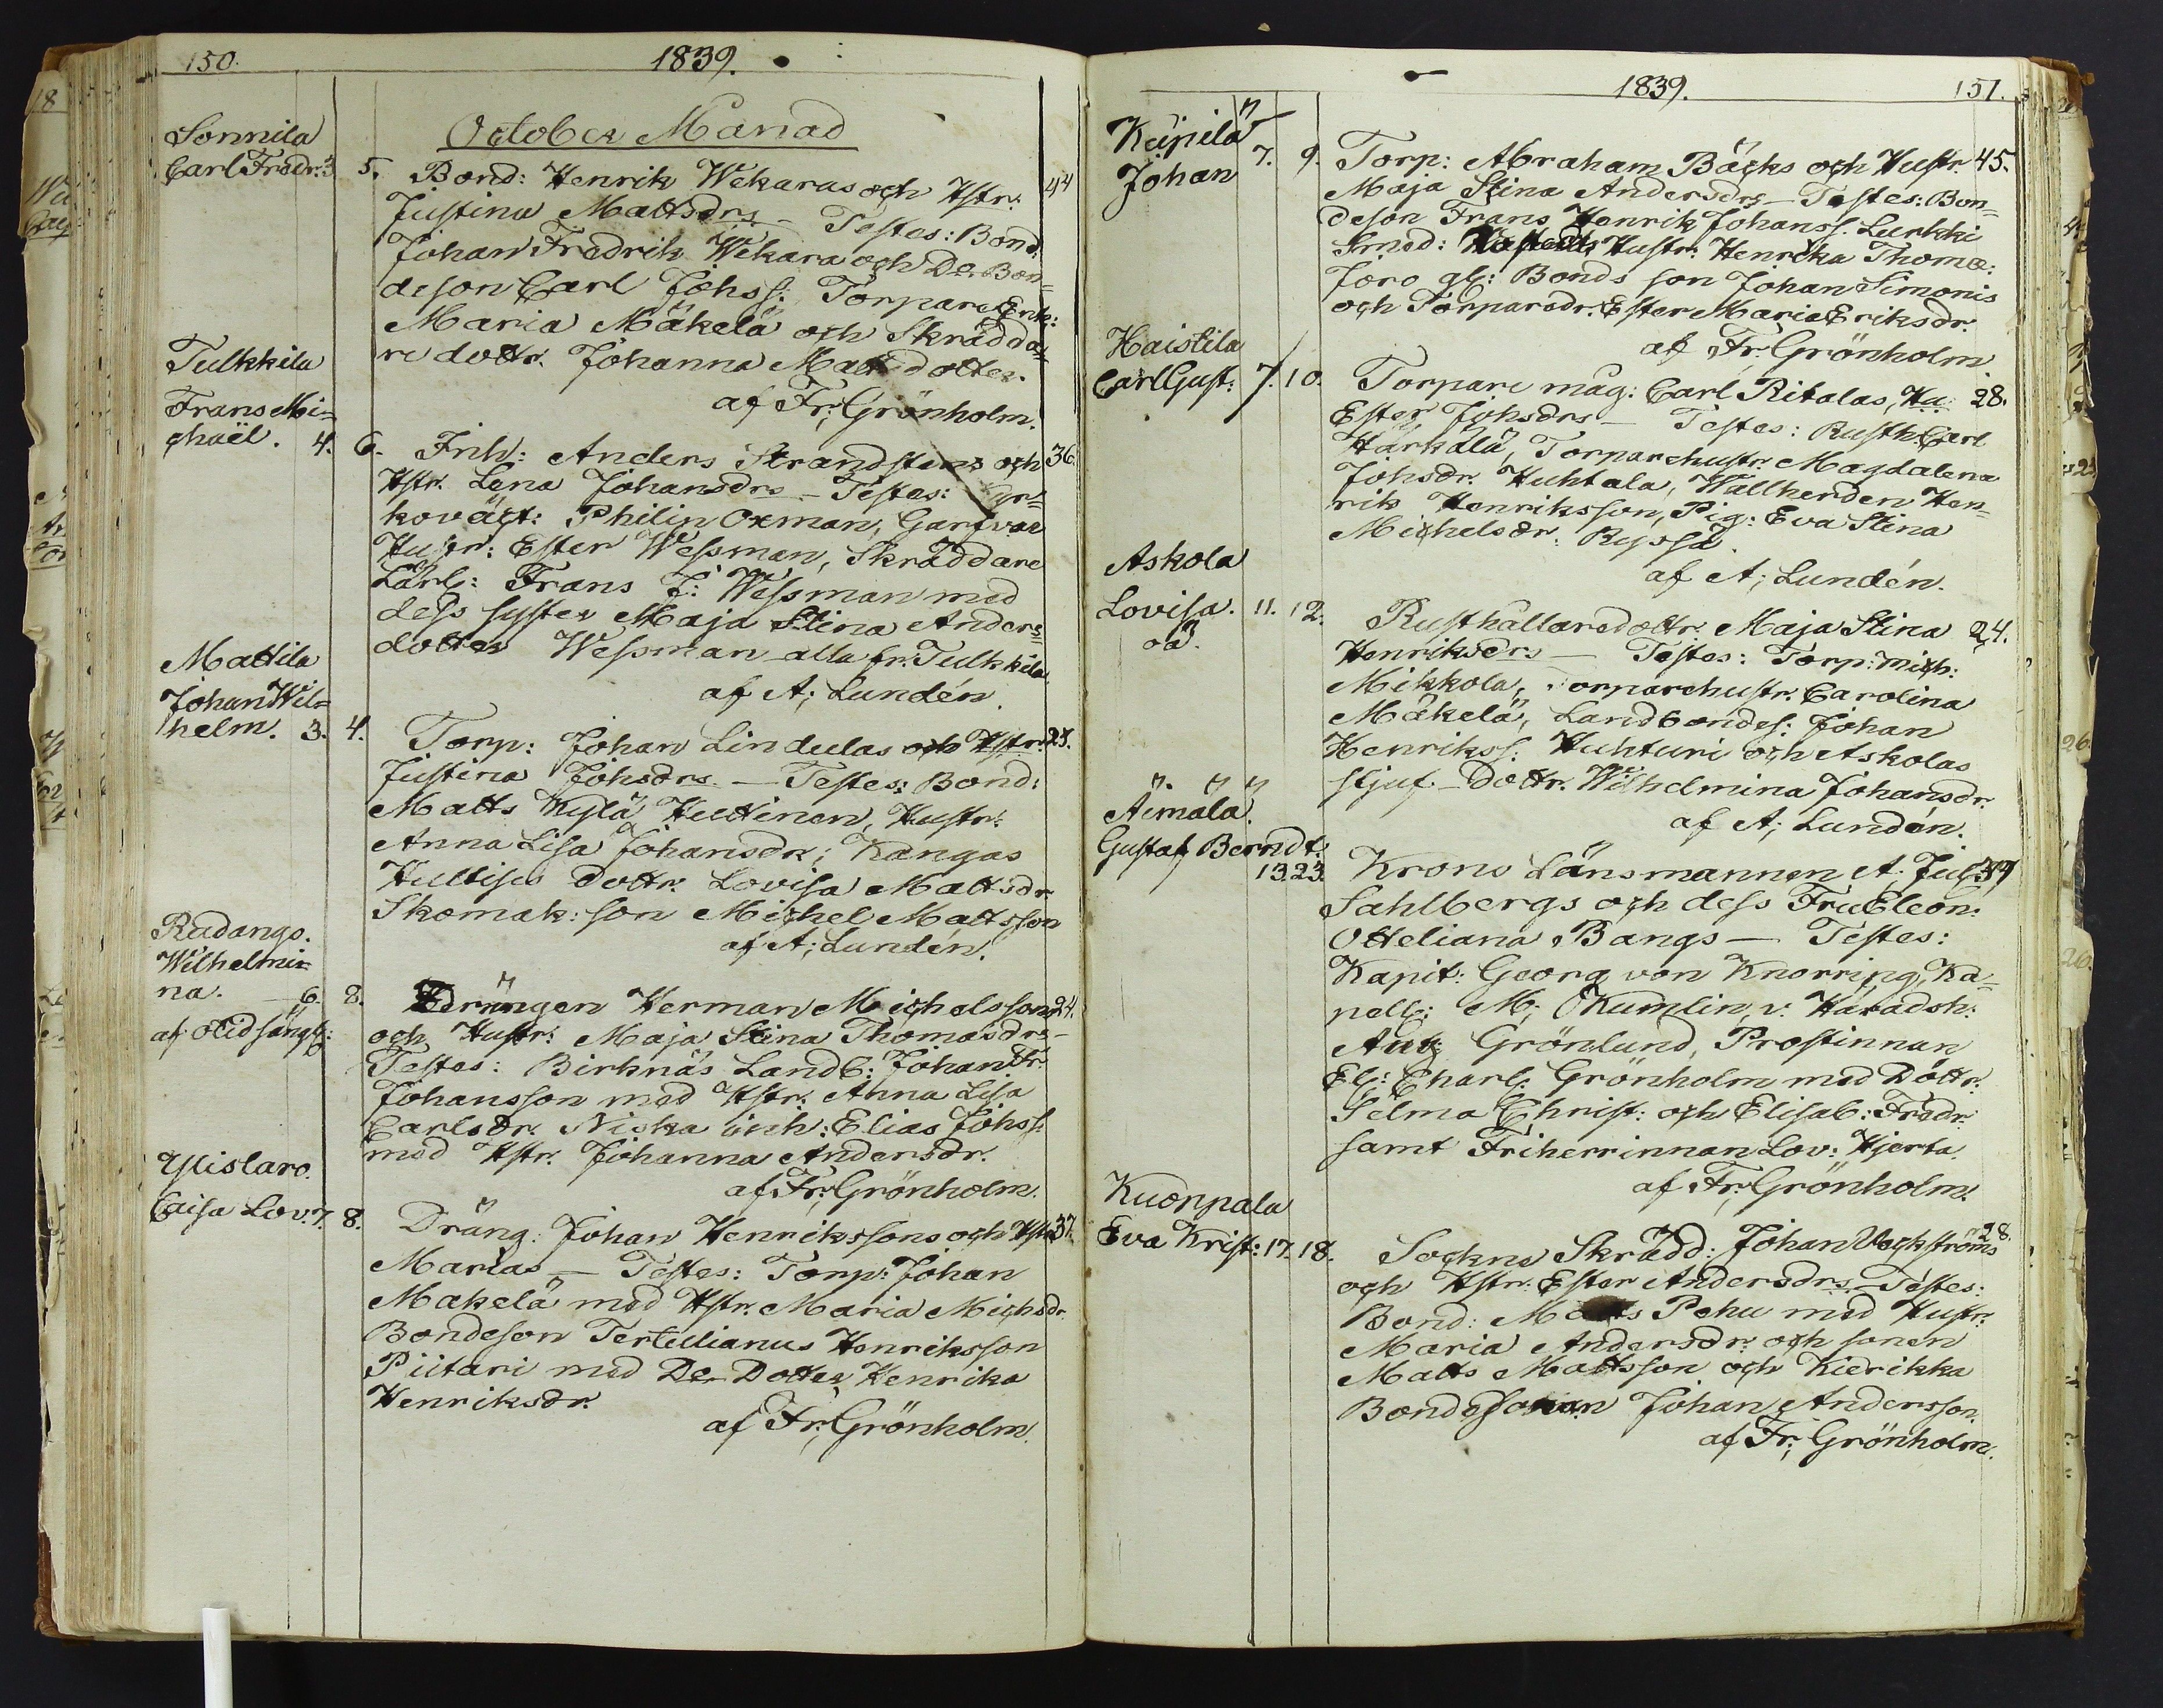 150.
1839.
October Månad
Sonnila
Carl Fredr: 3 5. Bond: Henrik Wekaras och Hstr: 44
Justina Mattsdrs – Testes: Bond:
Johan Fredrik Wekara och Do Bon=
deson Carl Johss: Torpare Enk:
Maria Mäkelä och Skrädda=
re dottr. Johanna Mattsdotter.
af Fr; Grönholm.
Tulkkila
Frans Mi=
chaël. 4. 6. Inh: Anders Strandstens och 36.
Hstr. Lena Johansdrs – Testes: Kyr=
kovägt: Philip Oxman, Garfvar
Hustr: Ester Wessman, Skräddare
Lärl: Frans J: Wessman med
dess syster Maja Stina Anders
dotter Wessman alla fr. Tulkkila.
af A; Lundén.
Mattila
Johan Wil=
helm. 3. 4. Torp: Johan Lindulas och Hstr. 23.
Justina Johsdrs. – Testes: Bond:
Matts Kylä Huttinen, Hustr:
Anna Lisa Johansdr; Kangas
Dottr. Lovisa Mattsdr.
Skomak: son Michel Mattsson
af A; Lundén.
Radangs.
Wilhelmi=
na. 6. 8. Drängen Herman Michelssons 24.
af Tidsängl:
och Hustr: Maja Stina Thomasdrs –
Testes: Birknäs Landb: Johan Fr:
Johansson med Hstr. Anna Lisa
Carlsdr. Niska inh: Elias Johss:
med Hstr. Johanna Andersdr.
af Fr; Grönholm.
Ylistaro.
Caisa Lov. 7. 8. Dräng: Johan Henrikssons och Hstr 37.
Marias – Testes: Torp: Johan
Makelä med Hstr. Maria Michsdr.
Bondeson Tertullianus Henriksson
Piitari med Do Dotter Henrika
Henriksdr.
af Fr; Grönholm.
1839.
151.
Kaipila
Johan 7. 9. Torp: Abraham Bäcks och Hustr. 45.
Maja Stina Andersdrs – Testes: Bon=
deson Frans Henrik Johanss: Lurkki
Smed: Hustr: Henrika Thomæ:
Joro gl: Bonds son Johan Simonis
och Torparedr. Ester Maria Eriksdr.
af Fr. Grönholm
Haistila
Carl Gust: 7. 10. Torpare måg: Carl Ritalas, Hu: 28.
Ester Johsdrs – Testes: Rusth Carl
Härkälä, Torparehustr. Magdalena
Johsdr. Huhtala, Wallherden Hen=
rik Henriksson, Pig: Eva Stina
Michelsdr. Ryssä.
af A; Lundén.
Askola
Lovisa. 11. 12. Rusthållaredottr. Maja Stina 24.
oä.
Henriksdrs – Testes: Torp: Mich:
Mikkola, Torparehustr. Carolina
Mäkelä, Landbondes: Johan
Henrikss: Huhturi och Askolas
stjuf-Dottr. Wilhelmina Johansdr.
af A; Lundén.
Äimälä.
Gustaf Berndt:
13. 23. Krono Länsmannen A. Jul: 39
Sahlbergs och dess Fru Eleon:
Otteliana Bangs – Testes:
Kapit: Georg von Knorring, Ka=
pell: M; Kumlin, v: Häradsh:
Aug: Grönlund, Prostinnan
El: Charl: Grönholm med Döttr.
Selma Christ: och Elisab: Fredr.
samt Friherrinnan Lov: Hjerta.
af Fr; Grönholm.
Kuoppala
Eva Krist: 17. 18. Sockne Skrädd: Johan Weckströms 28.
och Hstr: Ester Andersdrs – Testes:
Bond: Matts Pehu med Hustr.
Maria Andersdr. och sonen
Matts Mattsson och Kierikka
Bondesonen Johan Andersson.
af Fr; Grönholm.